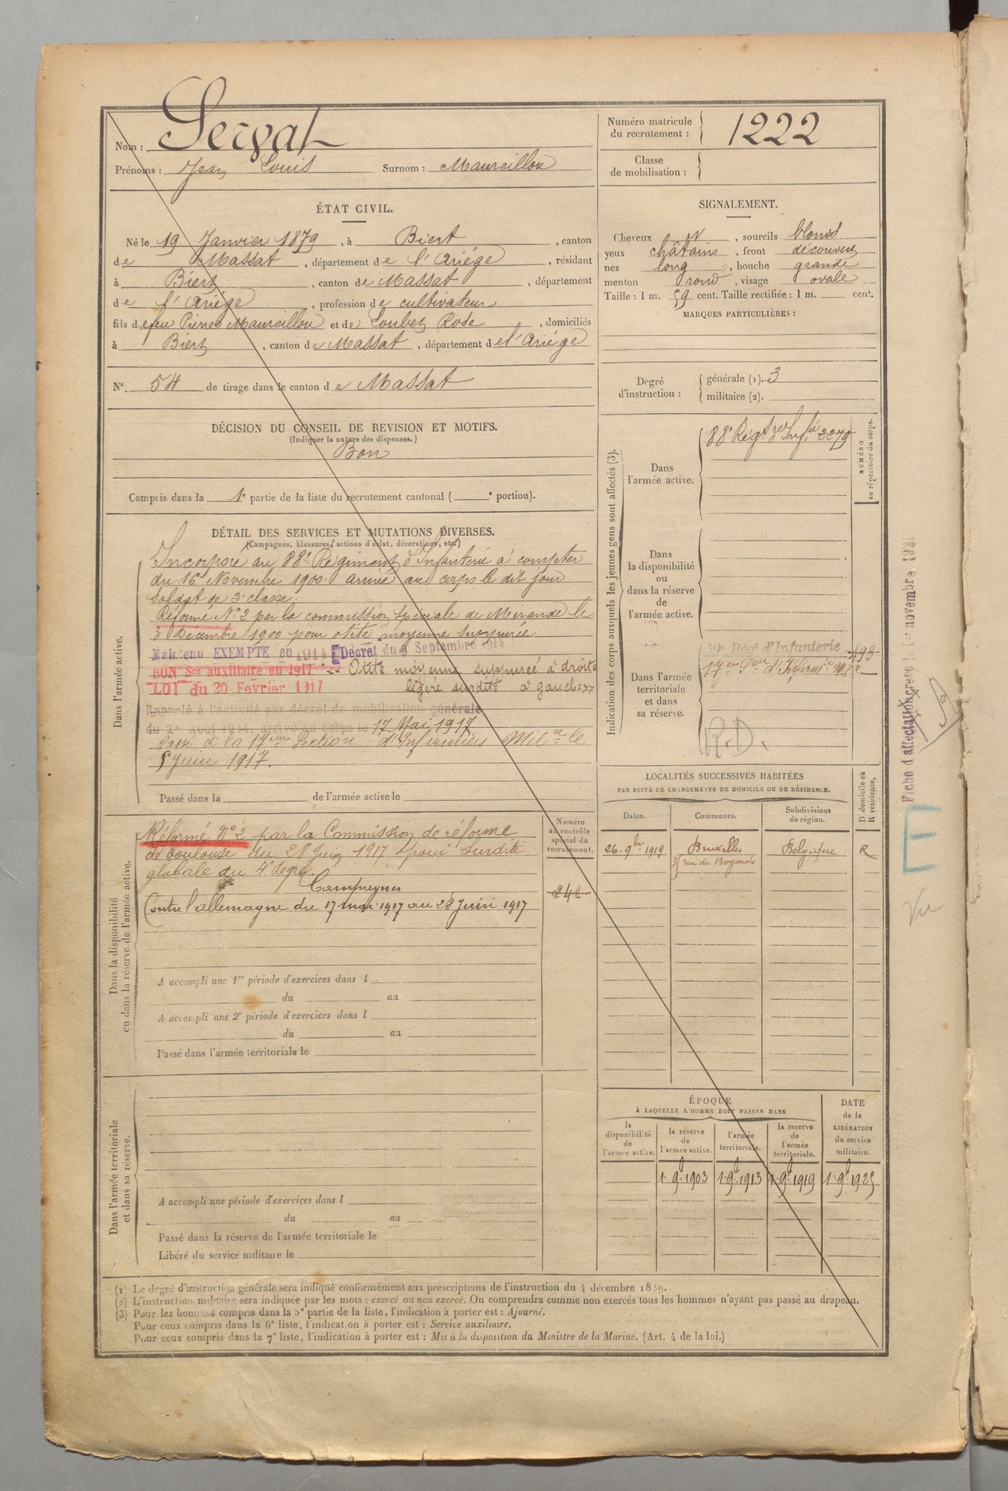 Nom : Servat
Prénoms : Jean Louis Surnom : Maureillou
Numéro matricule du recrutement : 1222
Classe de mobilisation :
ÉTAT CIVIL.
Né le 19 Janvier 1879, à Biert, canton
de Massat, département de l'Ariège, résidant
à Biert, canton de Massat, département
de l'Ariège, profession de cultivateur
fils de feu Pierre Maureillou et de Loubet Rose, domiciliés
à Biert, canton de Massat, département de l'Ariège
N° 54 de tirage dans le canton de Massat
SIGNALEMENT.
Cheveux et, sourcils blond
yeux châtains, front découvert
nez long, bouche grande
menton rond, visage ovale
Taille : 1 m. 59 cent. Taille rectifiée : 1 m. cent.
MARQUES PARTICULIÈRES :
Degré d'instruction : générale (1). 3
militaire (2).
DÉCISION DU CONSEIL DE REVISION ET MOTIFS.
(Indiquer la nature des dispenses.)
Bon
Compris dans la 1e partie de la liste du recrutement cantonal ( e portion).
DÉTAIL DES SERVICES ET MUTATIONS DIVERSES.
(Campagnes, blessures, actions d'éclat, décorations, etc.)
Dans l'armée active.
Incorporé au 88e Régiment d'Infanterie à compter
du 16 Novembre 1900. arrivé au corps le dit jour
soldat de 2e classe.
Réformé N°2 par la commission spéciale de Mirande le
3 Décembre 1900 pour otite moyenne suppurée
Maintenu EXEMPTE en 1914 Décret du 9 Septembre 1914
BON Sce auxiliaire en 1917 Otite moyenne suppurée à droite
LOI du 20 Fevrier 1917 légère surdité à gauche
Rappelé à l'activité par décret de mobilisation générale
du 1er Août 1914, arrivé au corps le 17 Mai 1917
Passé à la 17eme Section d'Infirmiers Mil.res le
5 Juin 1917.
Passé dans la de l'armée active le
Dans la disponibilité ou dans la réserve de l'armée active.
Réformé N°2 par la Commission de réforme
de Toulouse du 28 Juin 1917 pour surdité
globale du 4e degré.
Campagnes
Contre l'allemagne du 17 mai 1917 au 28 Juin 1917
A accompli une 1re période d'exercices dans l
du au
A accompli une 2e période d'exercices dans l
du au
Passé dans l'armée territoriale le
Numéro au contrôle spécial du recrutement.
242
Dans l'armée territoriale et dans sa réserve.
A accompli une période d'exercices dans l
du au
Passé dans la réserve de l'armée territoriale le
Libéré du service militaire le
Indication des corps auxquels les jeunes gens sont affectés (3).
NUMÉRO au répertoire du corps.
Dans l'armée active.
88e Régt d'Infie 3079
Dans la disponibilité ou dans la réserve de l'armée active.
Dans l'armée territoriale et dans sa réserve.
Régt d'Infanterie
17eme Son d'Infirmiers Mres
R.D.
LOCALITÉS SUCCESSIVES HABITÉES
PAR SUITE DE CHANGEMENTS DE DOMICILE OU DE RÉSIDENCE.
Dates. Communes. Subdivisions de région. D domicile ou R résidence.
26-9bre 1919 Bruxelles Belgique R
rue des Bogards
ÉPOQUE
À LAQUELLE L'HOMME DOIT PASSER DANS
la disponibilité de l'armée active. la réserve de l'armée active. l'armée territoriale. la réserve de l'armée territoriale. DATE de la LIBÉRATION du service militaire.
1-9b 1903 1-9b 1913 1-9b 1919 1-9b 1925
Fiche d'affectation créée le 1er novembre
Vu
(1) Le degré d'instruction générale sera indiqué conformément aux prescriptions de l'instruction du 4 décembre 1889.
(2) L'instruction militaire sera indiquée par les mots : exercé ou non exercé. On comprendra comme non exercés tous les hommes n'ayant pas passé au drapeau.
(3) Pour les hommes compris dans la 5e partie de la liste, l'indication à porter est : Ajourné.
Pour ceux compris dans la 6e liste, l'indication à porter est : Service auxiliaire.
Pour ceux compris dans la 7e liste, l'indication à porter est : Mis à la disposition du Ministre de la Marine. (Art. 4 de la loi.)